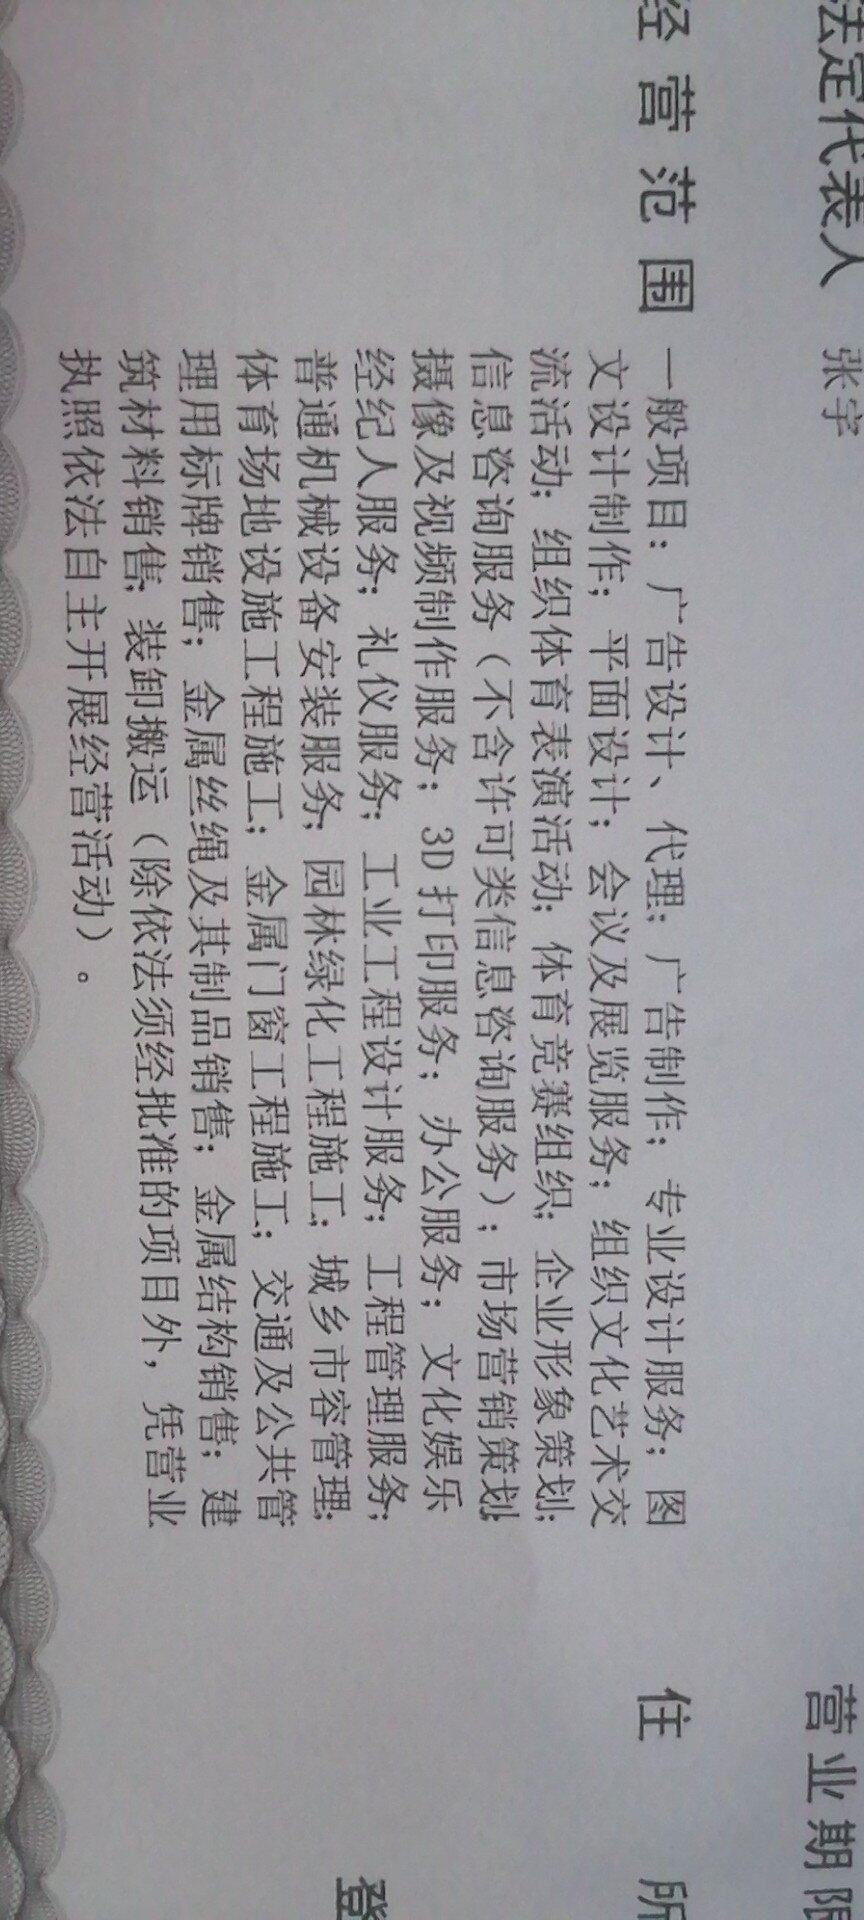 法定代表人 张宇
营业期限
经营范围 一般项目：广告设计、代理；广告制作；专业设计服务；图
文设计制作；平面设计；会议及展览服务；组织文化艺术交
流活动；组织体育表演活动；体育竞赛组织；企业形象策划；
信息咨询服务（不含许可类信息咨询服务）；市场营销策划；
摄像及视频制作服务；3D打印服务；办公服务；文化娱乐
经纪人服务；礼仪服务；工业工程设计服务；工程管理服务；
普通机械设备安装服务；园林绿化工程施工；城乡市容管理；
体育场地设施工程施工；金属门窗工程施工；交通及公共管
理用标牌销售；金属丝绳及其制品销售；金属结构销售；建
筑材料销售；装卸搬运（除依法须经批准的项目外，凭营业
执照依法自主开展经营活动）。
住所
登